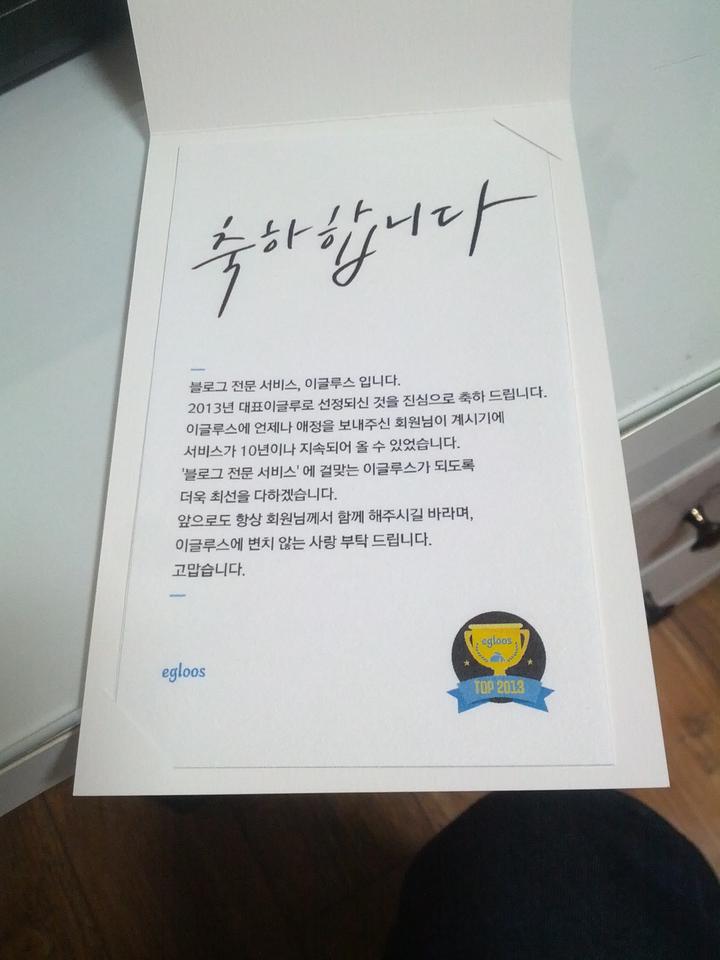 축하합니다
블로그 전문 서비스, 이글루스 입니다.
2013년 대표이글루로 선정되신 것을 진심으로 축하 드립니다.
이글루스에 언제나 애정을 보내주신 회원님이 계시기에
서비스가 10년이나 지속되어 올 수 있었습니다.
'블로그 전문 서비스' 에 걸맞는 이글루스가 되도록
더욱 최선을 다하겠습니다.
앞으로도 항상 회원님께서 함께 해주시길 바라며,
이글루스에 변치 않는 사랑 부탁 드립니다.
고맙습니다.
egloos
egloos
TOP 2013